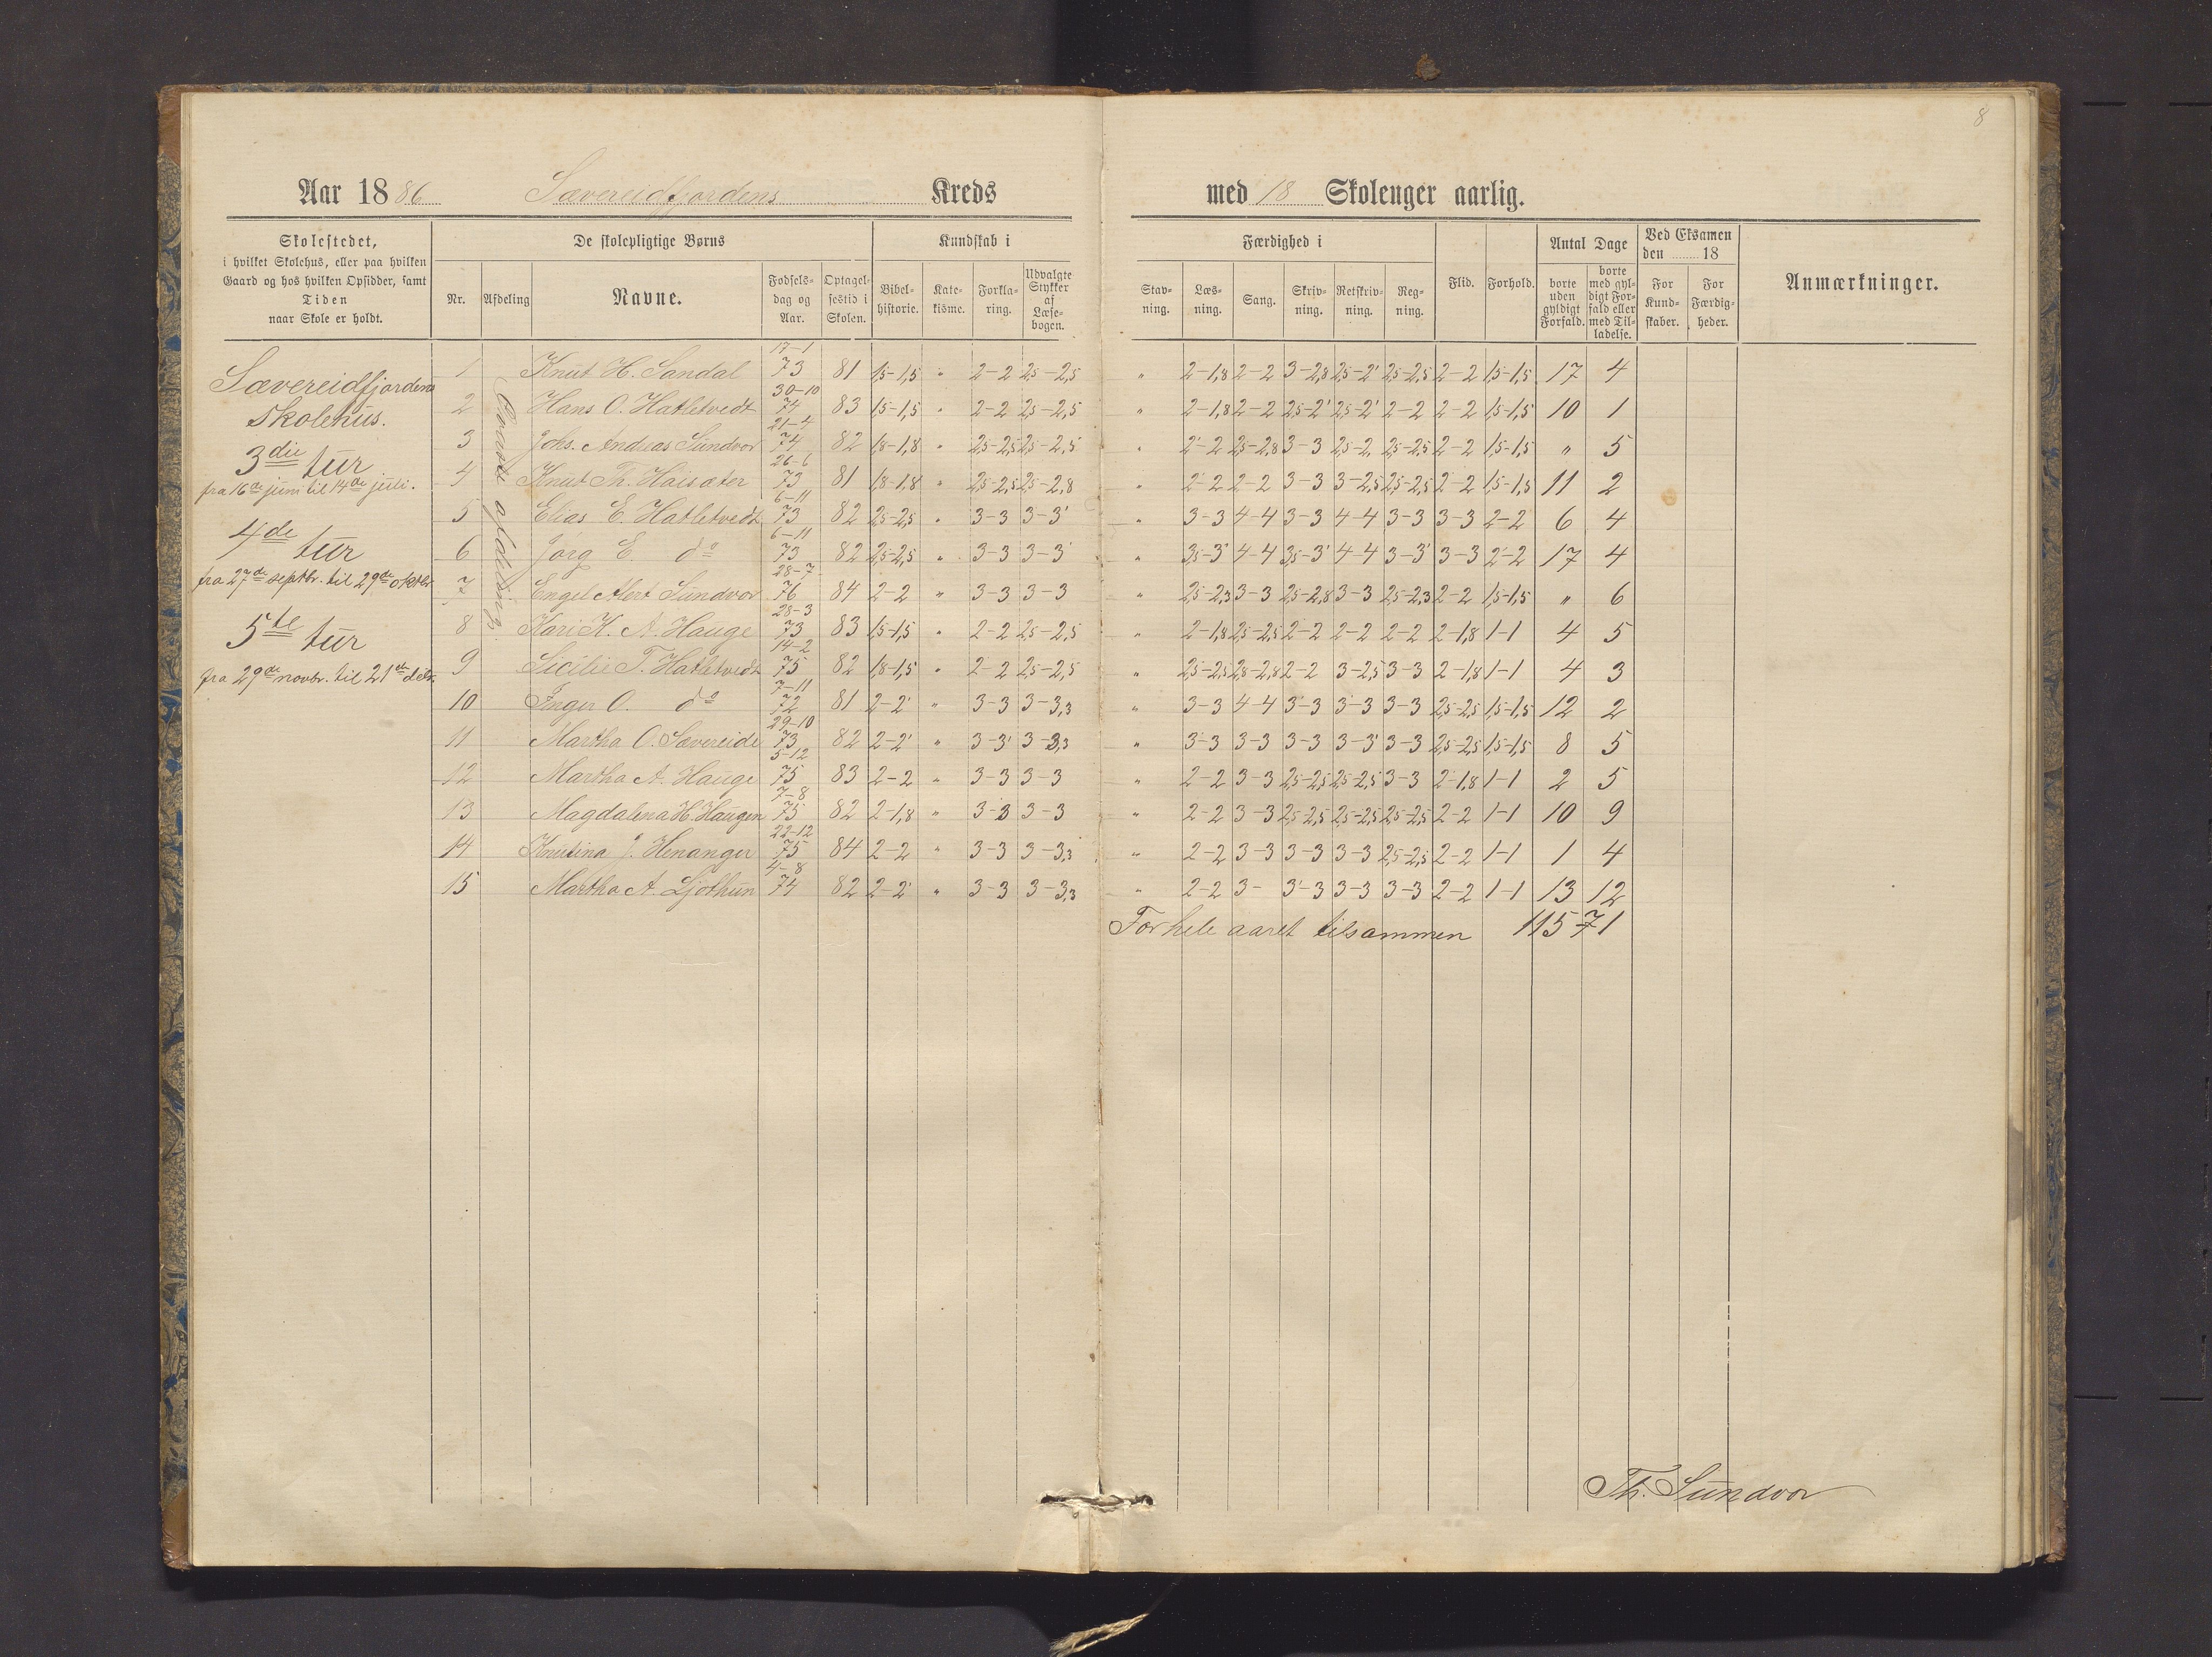 8
Aar 1886 Sævereidfjordens Kreds med 18 Skoleuger aarlig.
Skolestedet, i hvilket Skolehus, eller paa hvilken Gaard og hos hvilken Opsidder, samt Tiden naar Skole er holdt.
De skolepligtige Børns
Nr. Afdeling Navne. Fødsels-dag og Aar. Optagel-sestid i Skolen.
Kundskab i
Bibel-historie. Kate-kisme. Forkla-ring. Udvalgte Stykker af Læse-bogen.
Færdighed i
Stav-ning. Læs-ning. Sang. Skriv-ning. Retskriv-ning. Reg-ning.
Flid. Forhold.
Antal Dage
borte uden gyldigt Forfald. borte med gyl-digt For-fald eller med Til-ladelse.
Ved Eksamen den 18
For Kund-skaber. For Færdig-heder.
Anmærkninger.
Sævereidfjordens
Skolehus.
3die tur
fra 16de juni til 14de juli.
4de tur
fra 27de septbr. til 29de oktbr.
5te tur
fra 29de novbr. til 21de decbr.
afdeling
1 Knut H. Sandal 17-1 73 81 1,5-1,5 " 2-2 2,5-2,5 " 2-1,8 2-2 3-2,8 2,5-2' 2,5-2,5 2-2 1,5-1,5 17 4
2 Hans O. Hatletvedt 30-10 74 83 1,5-1,5 " 2-2 2,5-2,5 " 2-1,8 2-2 2,5-2' 2,5-2' 2-2 2-2 1,5-1,5 10 1
3 Johs. Andreas Sundvor 21-4 74 82 1,8-1,8 " 2,5-2,5 2,5-2,5 " 2-2 2,5-2,8 3-3 2,5-2 2,5-2,5 2-2 1,5-1,5 " 5
4 Knut Th. Haisæter 26-6 73 81 1,8-1,8 " 2,5-2,5 2,5-2,8 " 2-2 2-2 3-3 3-2,5 2,5-2,5 2-2 1,5-1,5 11 2
5 Elias E. Hatletvedt 6-11 73 82 2,5-2,5 " 3-3 3-3' " 3-3 4-4 3-3 4-4 3-3 3-3 2-2 6 4
6 Jørg E. do 6-11 73 82 2,5-2,5 " 3-3 3-3' " 3,5-3' 4-4 3,5-3' 4-4 3-3' 3-3 2-2 17 4
7 Engel Alert Sundvor 28-7 76 84 2-2 " 3-3 3-3 " 2,5-2,3 3-3 2,5-2,8 3-3 2,5-2,3 2-2 1,5-1,5 " 6
8 Kari K. A. Hauge 28-3 73 83 1,5-1,5 " 2-2 2,5-2,5 " 2-1,8 2,5-2,5 2-2 2-2 2-2 2-1,8 1-1 4 5
9 Sicilie T. Hatletvedt 14-2 75 82 1,8-1,5 " 2-2 2,5-2,5 " 2,5-2,5 2,8-2,8 2-2 3-2,5 3-3 2-1,8 1-1 4 3
10 Inger O. do 7-11 72 81 2-2' " 3-3 3-3,3 " 3-3 4-4 3-3 3-3 3-3 2,5-2,5 1,5-1,5 12 2
11 Martha O. Sævereide 29-10 73 82 2-2' " 3-3' 3-3,3 " 3-3 3-3 3-3 3-3' 3-3 2,5-2,5 1,5-1,5 8 5
12 Martha A. Hauge 5-12 75 83 2-2 " 3-3 3-3 " 2-2 3-3 2,5-2,5 2,5-2,5 3-3 2-1,8 1-1 2 5
13 Magdalena H. Haugen 7-8 75 82 2-1,8 " 3-3 3-3 " 2-2 3-3 2,5-2,5 2,5-2,5 2,5-2,5 2-2 1-1 10 9
14 Knutina J. Henanger 22-12 75 84 2-2 " 3-3 3-3,3 " 2-2 3-3 3-3 3-3 2,5-2,5 2-2 1-1 1 4
15 Martha A. Ljothun 4-8 74 82 2-2' " 3-3 3-3,3 " 2-2 3- 3'-3 3-3 3-3 2-2 1-1 13 12
For hele aaret tilsammen 115 71
Th. Sundvor